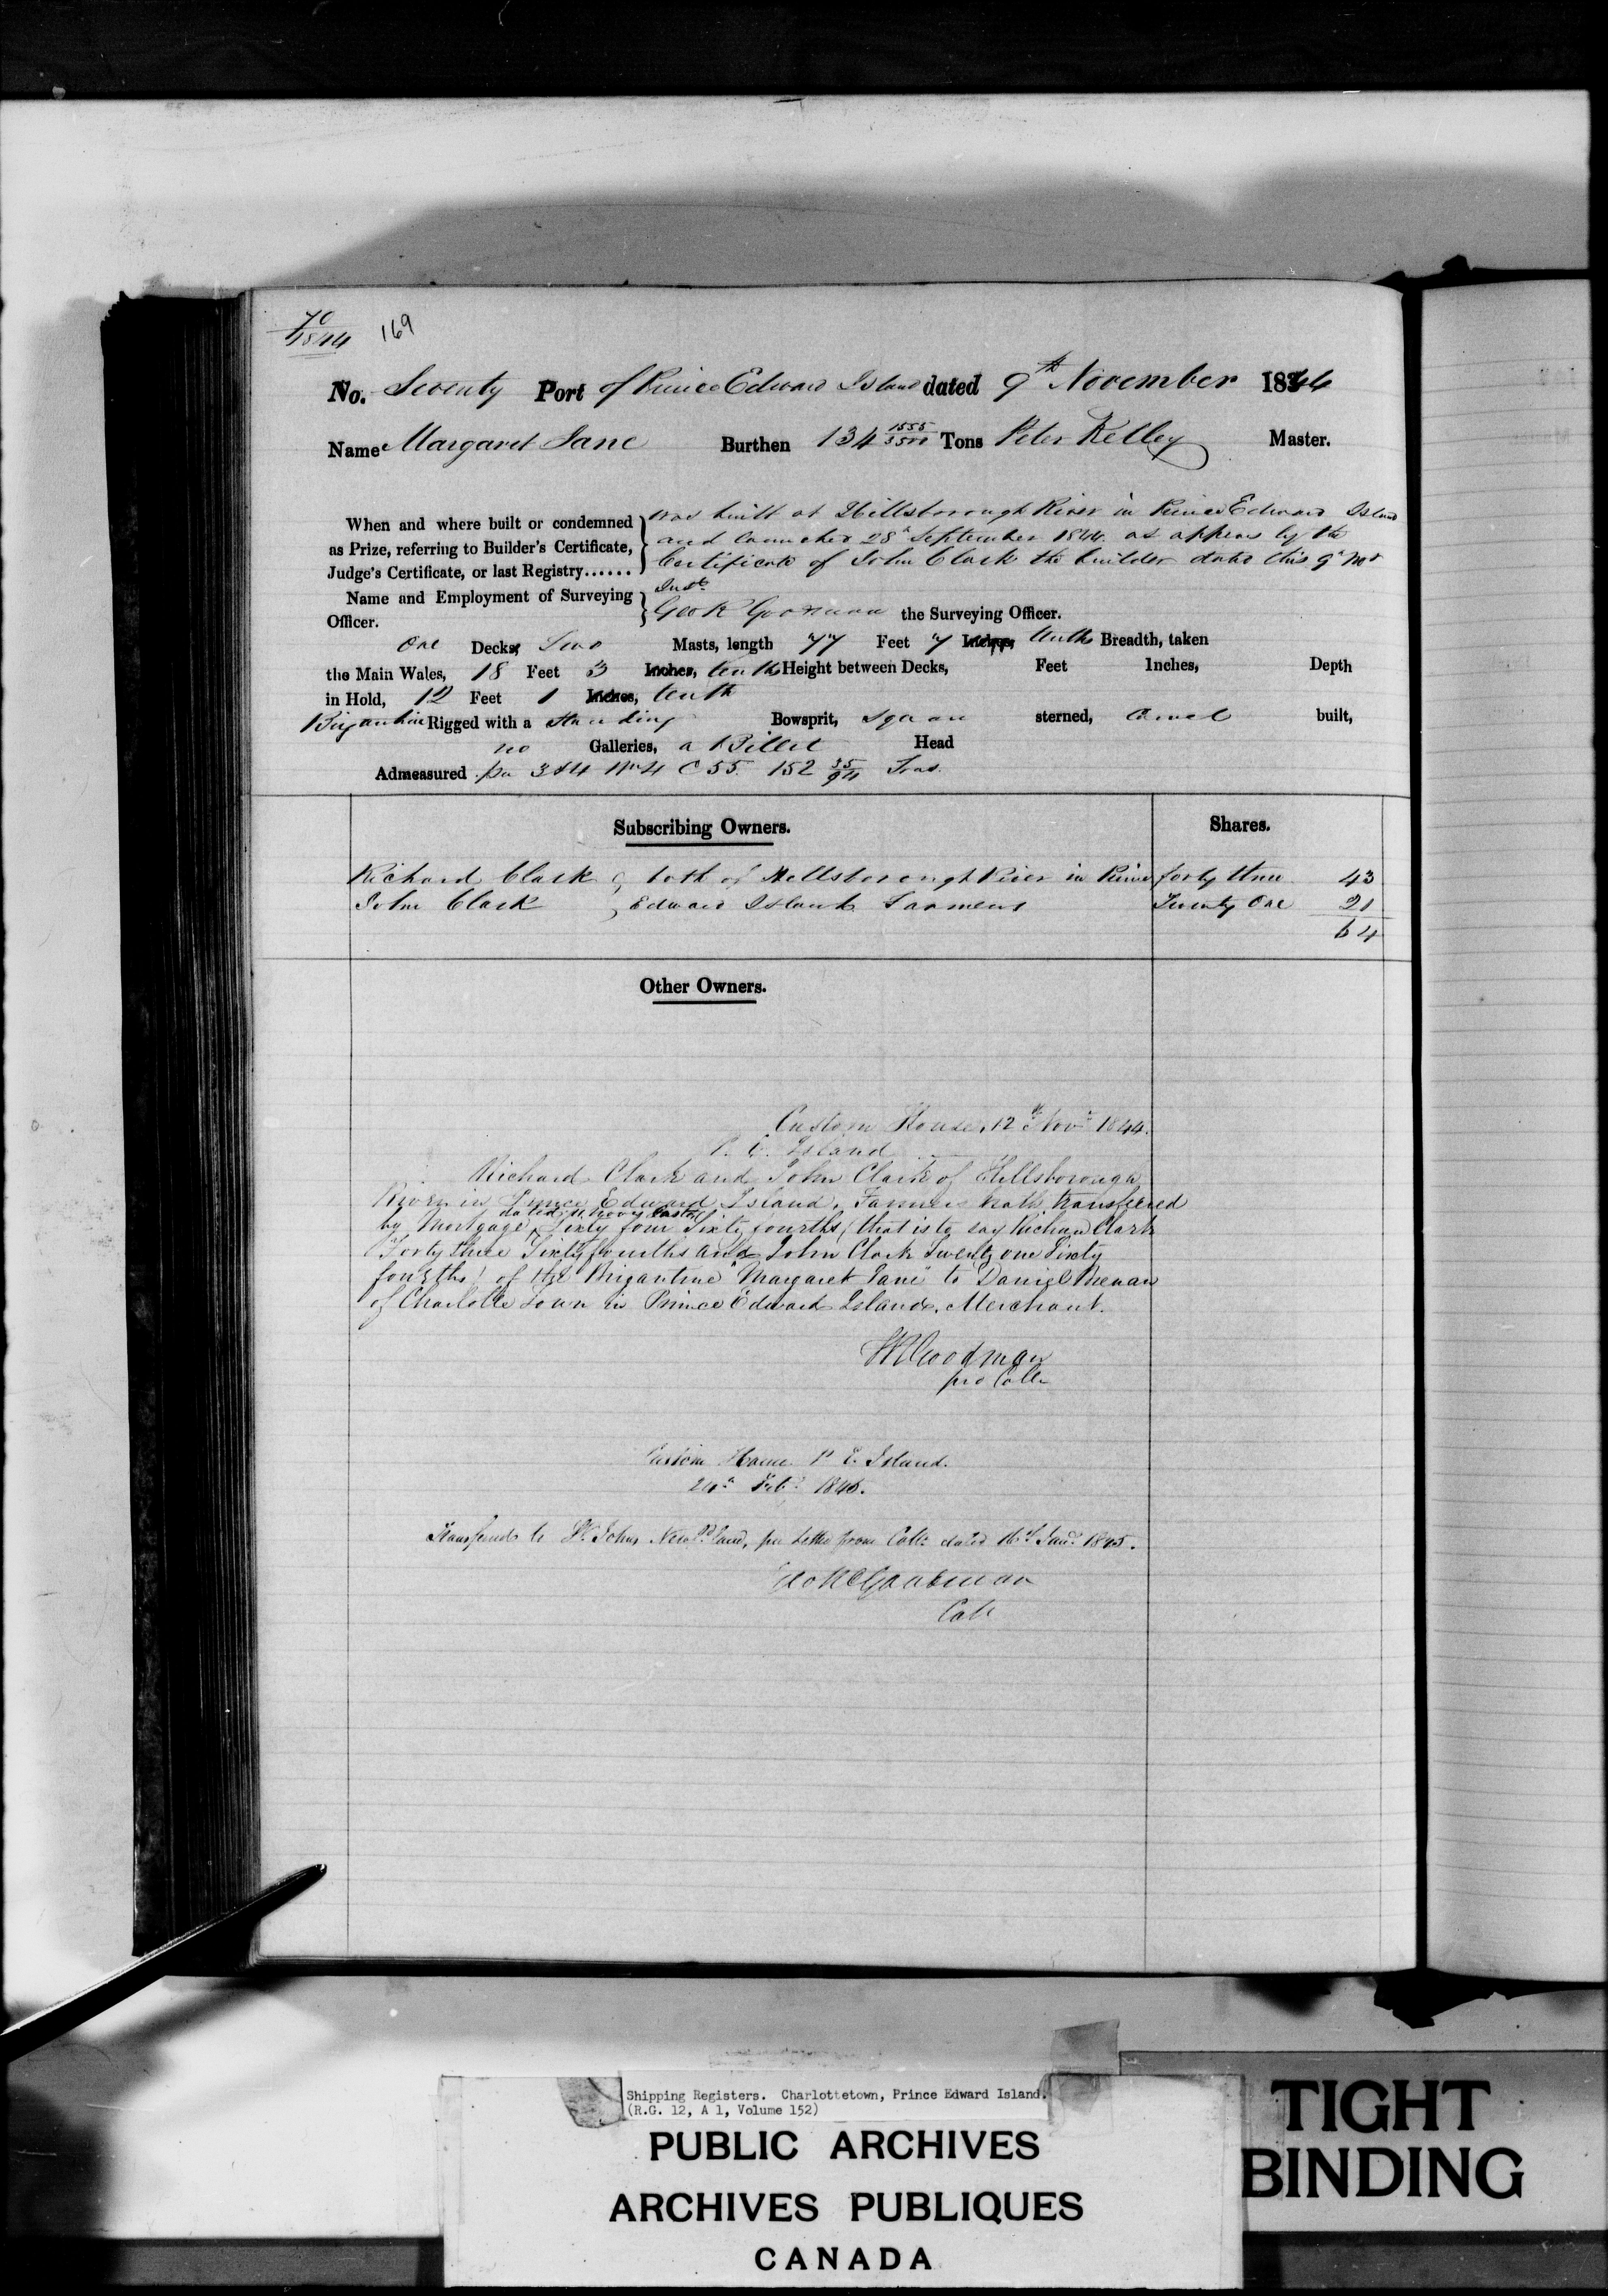 70
1844
169
No. Seventy Port of Prince Edward Island dated 9th November 1844
Name Margaret Jane Burthen 134 1555/3500 Tons Peter Kelley Master.
When and where built or condemned
as Prize, referring to Builder's Certificate,
Judge's Certificate, or last Registry......
was built at Hillsborough River in Prince Edward Island
and launched 28th September 1844 as appears by the
Certificate of John Clark the builder dated this 9th
Inst
Name and Employment of Surveying
Officer.
Geo R Goodman the Surveying Officer.
One Decks, Two Masts, length 77 Feet 7 Inches, tenths Breadth, taken
the Main Wales, 18 Feet 3 Inches, tenths Height between Decks, Feet Inches, Depth
in Hold, 12 Feet 1 Inches, tenth
Brigantine Rigged with a Standing Bowsprit, Square sterned, Carvel built,
no Galleries, a Billet Head
Admeasured pr 3 & 4 Wm 4 C 55. 152 35/94 Tons.
Subscribing Owners. Shares.
Richard Clark both of Hillsborough River in Prince forty three 43
John Clark Edward Island Farmers Twenty One 21
64
Other Owners.
Custom House, 12th Novr 1844.
P. E. Island
Richard Clark and John Clark of Hillsborough
River in Prince Edward Island, Farmers hath transferred
dated Novr instt
by Mortgage, Sixty four Sixty fourths (that is to say Richard Clark
Forty three Sixty fourths and John Clark Twenty one Sixty
fourths) of the Brigantine "Margaret Jane" to Daniel Brenan
of Charlotte Town in Prince Edward Island, Merchant.
Goodman
pro Collr
Custom House P E. Island.
Feby 1845.
Transferred to St. Johns Newfdland, per Letter from Collr dated 16th Jany 1845.
Geo R Goodman
Collr
Shipping Registers. Charlottetown, Prince Edward Island.
(R.G. 12, A 1, Volume 152)
PUBLIC ARCHIVES
ARCHIVES PUBLIQUES
CANADA
TIGHT
BINDING